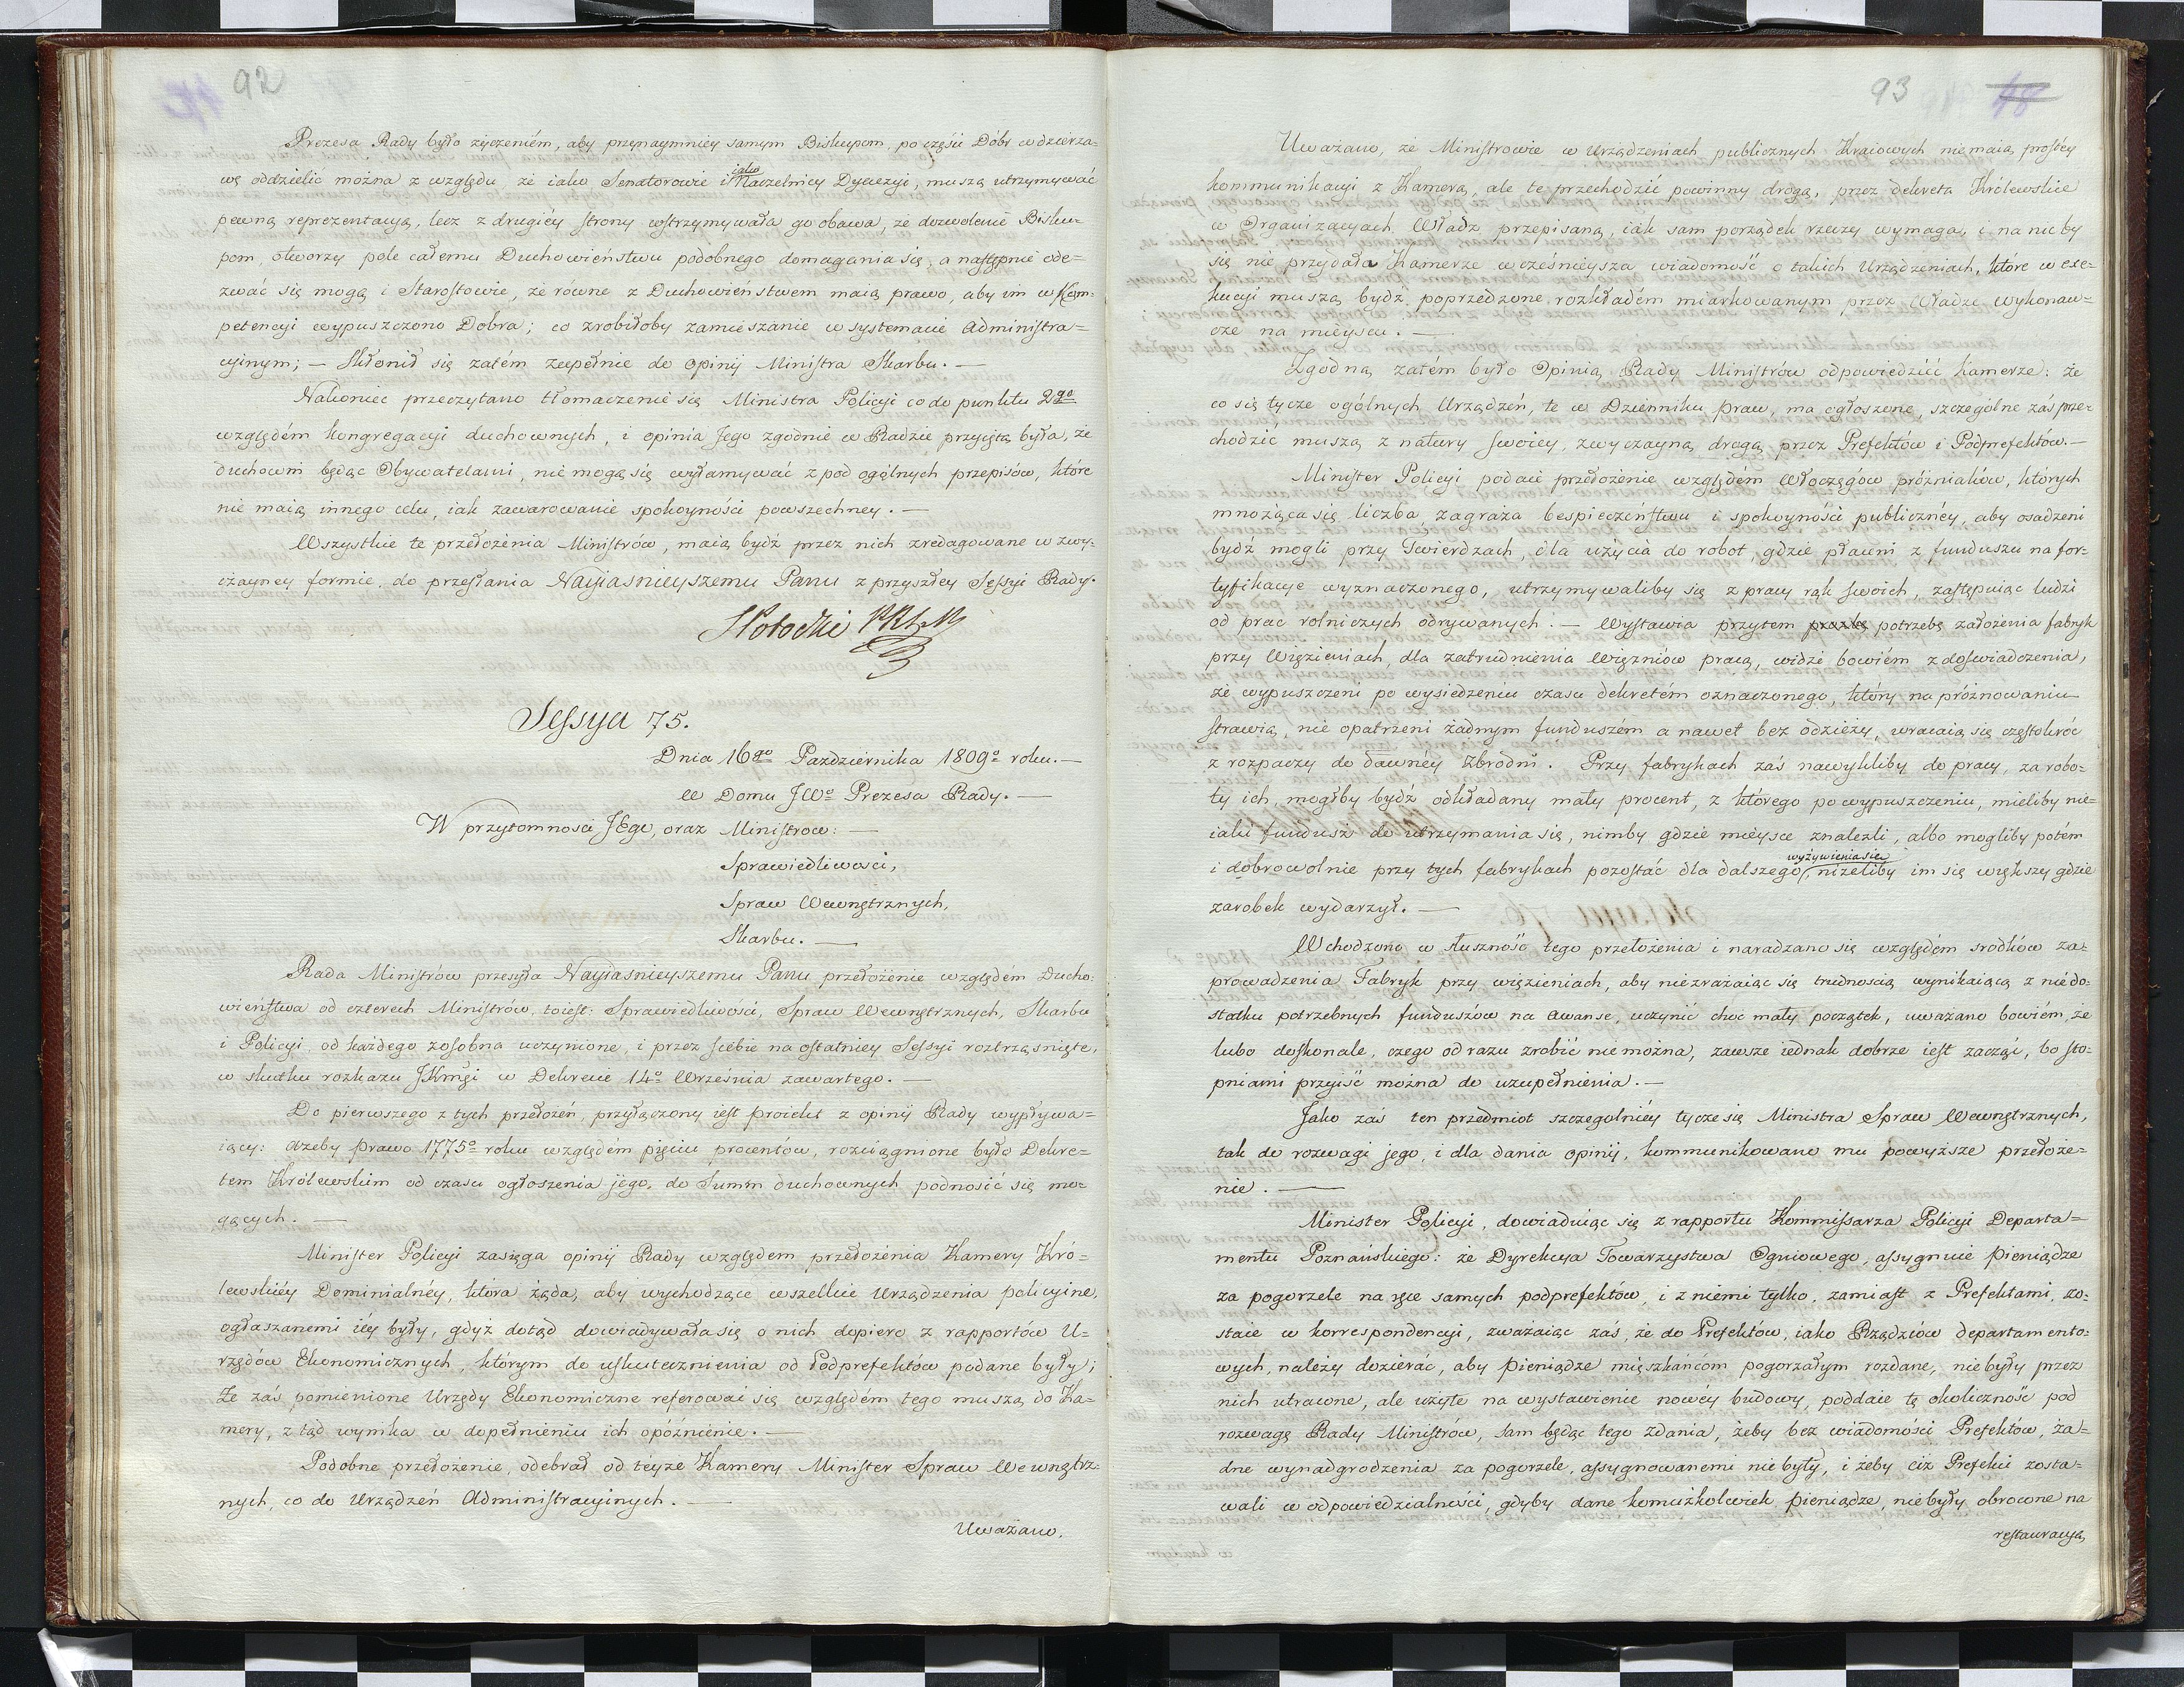 92
Prezesa Rady było życzeniém, aby przynaymniey samym Biskupom, po części Dóbr w dzierża=
wę oddzielić można z względu, że iako Senatorowie i iako Naczelnicy Dyecezyi, muszą utrzymywać
pewną reprezentacyą, lecz z drugiéy strony wstrzymywała go obawa, że dozwolenie Bisku=
pom, otworzy pole całemu Duchowieństwu podobnego domagania się, a następnie ode=
zwać się mogą i Starostowie, że równe z Duchowieństwem maią prawo, aby im w Kom=
petencyi wypuszczono Dobra; co zrobiłoby zamieszanie w systemacie Administra=
cyinym; — Skłonił się zatém zupełnie do opinij Ministra Skarbu. —
Nakoniec przeczytano tłomaczenie się Ministra Policyi co do punktu 2go
względém kongregacyi duchownych, i opinia Jego zgodnie w Radzie przyiętą była, że
duchowni będąc Obywatelami, nie mogą się wyłamywać z pod ogólnych przepisów, które
nie maią innego celu, iak zawarowanie spokoyności powszechney. —
Wszystkie te przełożenia Ministrów, maią bydź przez nich zredagowane w zwy=
czayney formie, do przesłania Nayiaśnieyszemu Panu z przyszłey Sessyi Rady.
Potocki
Sessya 75.
Dnia 16go Pazdziernika 1809o roku. —
W Domu JWo Prezesa Rady. —
W przytomności JEgo, oraz Ministrow: —
Sprawiedliwości,
Spraw Wewnętrznych,
Skarbu. —
Rada Ministrów przesyła Nayiaśnieyszemu Panu przełożenie względem Ducho=
wieństwa od czterech Ministrów, toiest: Sprawiedliwości, Spraw Wewnętrznych, Skarbu
i Policyi, od każdego zosobna uczynione, i przez siebie na ostatniey Sessyi roztrząsnięte,
w skutku rozkazu JKmści w Dekrecie 14o Września zawartego. —
Do pierwszego z tych przełożeń, przyłączony iest proiekt z opinij Rady wypływa=
iący: ażeby prawo 1775o roku względém pięciu procentów, rozciągnione było Dekre=
tem Królewskim od czasu ogłoszenia jego, do Summ duchownych podnosić się mo=
gących. —
Minister Policyi zasięga opinij Rady względem przełożenia Kamery Kró=
lewskiéy Dominialnéy, która żąda, aby wychodzące wszelkie Urządzenia policyine,
ogłaszanemi iéy były, gdyż dotąd dowiadywała się o nich dopiero z rapportów U=
rzędów Ekonomicznych, którym do uskutecznienia od Podprefektów podane były;
Że zaś pomienione Urzędy Ekonomiczne referować się względém tego muszą do Ka=
mery, z tąd wynika w dopełnieniu ich opóźnienie. —
Podobne przełożenie, odebrał od teyże Kamery Minister Spraw Wewnętrz=
nych, co do Urządzeń Administracyinych. —
Uważano,
93
Uważano, że Ministrowie w Urządzeniach publicznych Kraiowych nie maią prostéy
kommunikacyi z Kamerą, ale te przechodzić powinny drogą, przez dekreta Królewskie
w Organizacyach Władz przepisaną, iak sam porządek rzeczy wymaga, i na nic by
się nie przydała Kamerze wcześnieysza wiadomość o takich Urządzeniach, które w exe=
kucyi muszą bydź poprzedzone rozkładém miarkowanym przez Władze wykonaw=
cze na mieyscu. —
Zgodną zatém było Opinią Rady Ministrów odpowiedzieć Kamerze: że
co się tycze ogólnych Urządzeń, te w Dzienniku praw, ma ogłoszone, szczególne zaś prze=
chodzić muszą z natury swoiey, zwyczayną drogą przez Prefektów i Podprefektów. —
Minister Policyi podaie przełożenie względém Włoczęgów próżniaków, których
mnożąca się liczba, zagraża bespieczeństwu i spokoyności publicznéy, aby osadzeni
bydź mogli przy Twierdzach, dla użycia do robot, gdzie płaceni z funduszu na for=
tyfikacye wyznaczonego, utrzymywaliby się z pracy rąk swoich, zastępuiąc ludzi
od prac rolniczych odrywanych. — Wystawia przytem potrzebę założenia fabryk
przy Więzieniach, dla zatrudnienia Więzniów pracą, widzi bowiém z doświadczenia,
że wypuszczeni po wysiedzeniu czasu dekretém oznaczonego, który na próżnowaniu
strawią, nie opatrzeni żadnym funduszém a nawet bez odzieży, wracaią się częstokroć
z rozpaczy do dawnéy zbrodni. Przy fabrykach zaś nawykliby do pracy, za robo=
ty ich, mogłby bydź odkładany mały procent, z którego po wypuszczeniu, mieliby nie=
iaki fundusz do utrzymania się, nimby gdzie mieysce znalezli, albo mogliby potém
i dobrowolnie przy tych fabrykach pozostać dla dalszego wyżywienia się, niżeliby im się większy gdzie
zarobek wydarzył. —
Wchodzono w słuszność tego przełożenia i naradzano się względém srodków za=
prowadzenia Fabryk przy więzieniach, aby niezrażaiąc się trudnością wynikaiącą z niedo=
statku potrzebnych funduszów na awanse, uczynić choć mały początek, uważano bowiém, że
lubo doskonale, czego od razu zrobić nie można, zawsze iednak dobrze iest zacząć, bo sto=
pniami przyiść można do uzupełnienia. —
Jako zaś ten przedmiot szczegolniéy tycze się Ministra Spraw Wewnętrznych,
tak do rozwagi jego, i dla dania opinij, kommunikowano mu powyższe przełoże=
nie. —
Minister Policyi, dowiaduiąc się z rapportu Kommissarza Policyi Departa=
mentu Poznańskiego: że Dyrekcya Towarzystwa Ogniowego, assygnuie pieniądze
za pogorzele na ręce samych podprefektów, i z niemi tylko, zamiast z Prefektami, zo=
staie w korrespondencyi, zważaiąc zaś, że do Prefektów, iako Rządzców departamento=
wych, należy dozierać, aby pieniądze mięszkańcóm pogorzałym rozdane, niebyły przez
nich utracone, ale użyte na wystawienie nowéy budowy, poddaie tę okoliczność pod
rozwagę Rady Ministrów, sam będąc tego zdania, żeby bez wiadomości Prefektów, ża=
dne wynadgrodzenia za pogorzele, assygnowanemi niebyły, i żeby ciż Prefekci zosta=
wali w odpowiedzialności, gdyby dane komużkolwiek pieniądze, niebyły obrocone na
restauracyą